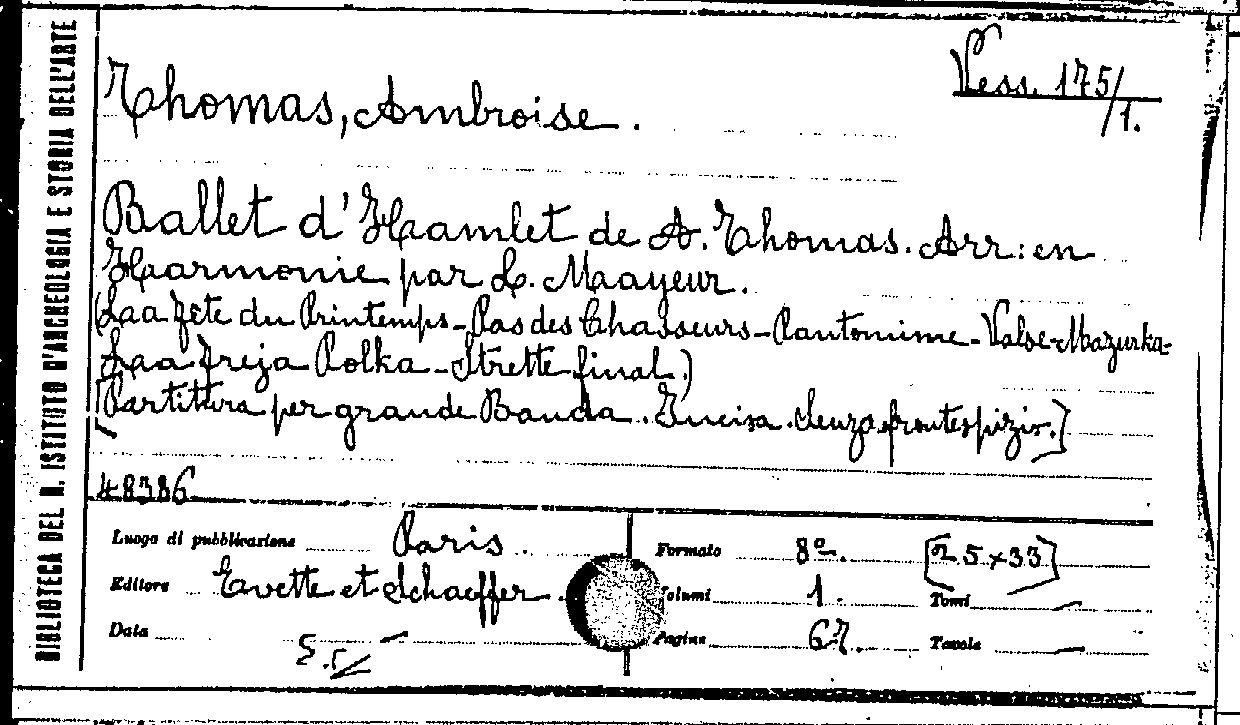 BIBLIOTECA DEL R. ISTITUTO D'ARCHEOLOGIA E STORIA DELL'ARTE
Vess. 175/1.
Thomas, Ambroise.
Ballet d'Hamlet de A. Thomas. Arr: en
Harmonie par L. Mayeur.
(La fête du Printemps - Pas des Chasseurs - Pantomime - Valse-Mazurka-
La Freja Polka - Strette final.)
[Partitura per grande Banda. Incisa. Senza frontespizio.]
48386
Luogo di pubblicazione Paris.
Editore Evette et Schaeffer.
Data S.d.
Formato 8º. [25x33]
Volumi 1. Tomi —
Pagine 67. Tavole —